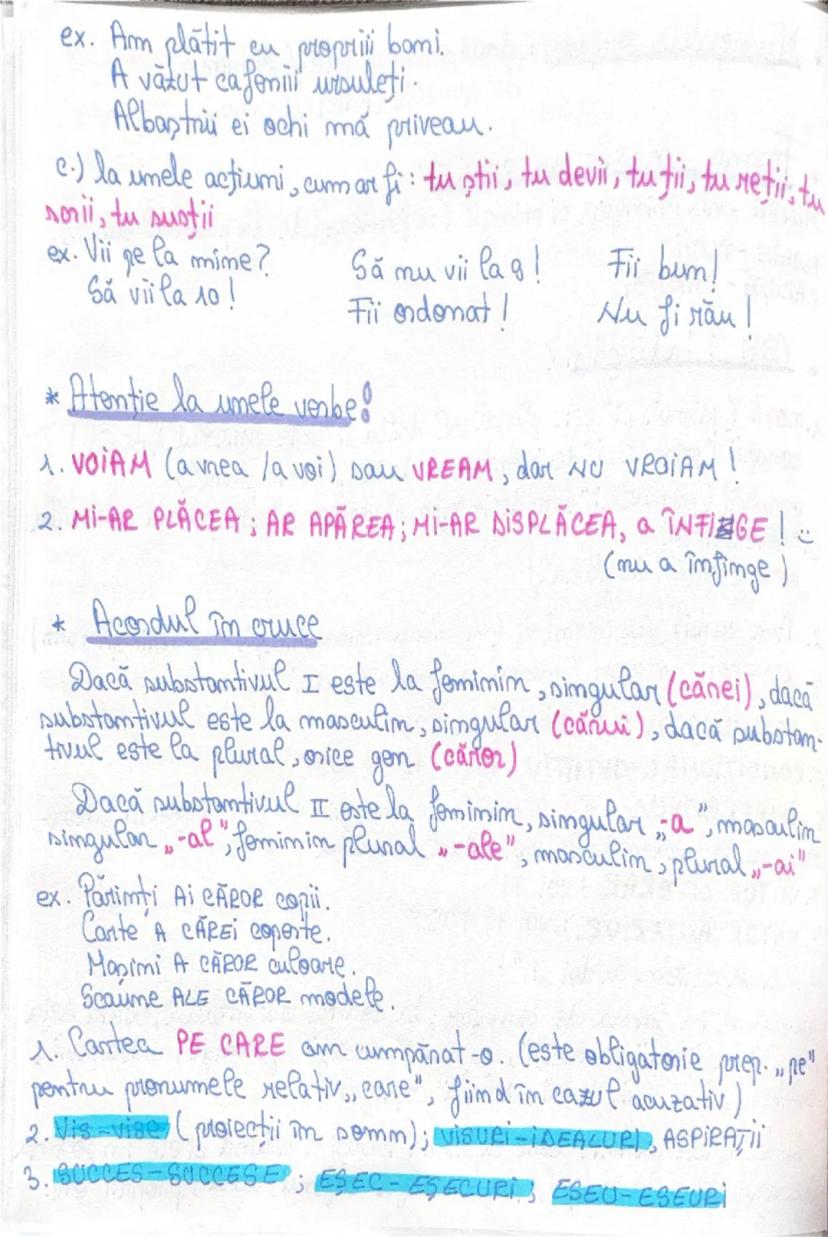 ex. Am plătit cu propriii bani.
A văzut cafeniii ursuleți.
Albaștrii ei ochi mă priveau.
c.) la unele acțiuni, cum ar fi: tu știi, tu devii, tu ții, tu reții, tu
scrii, tu susții
ex. Vii pe la mine? Să nu vii la 9! Fii bun!
Să vii la 10! Fii ordonat! Nu fi rău!
* Atenție la unele verbe!
1. VOIAM (a vrea /a voi) sau VREAM, dar NU VROIAM!
2. MI-AR PLĂCEA; AR APĂREA; MI-AR DISPLĂCEA, a ÎNFIGE! :)
(nu a înfinge)
* Acordul în cruce
Dacă substantivul I este la feminin, singular (cărei), dacă
substantivul este la masculin, singular (cărui), dacă substan-
tivul este la plural, orice gen (căror)
Dacă substantivul II este la feminin, singular „-a", masculin
singular „-al", feminin plural „-ale", masculin, plural „-ai"
ex. Părinți Ai CĂROR copii.
Carte A CĂREI coperte.
Mașini A CĂROR culoare.
Scaune ALE CĂROR modele.
1. Cartea PE CARE am cumpărat-o. (este obligatorie prep. „pe"
pentru pronumele relativ „care", fiind în cazul acuzativ)
2. Vis-vise (proiecții în somn); VISURI-IDEALURI, ASPIRAȚII
3. SUCCES-SUCCESE, EȘEC-EȘECURI, ESEU-ESEURI